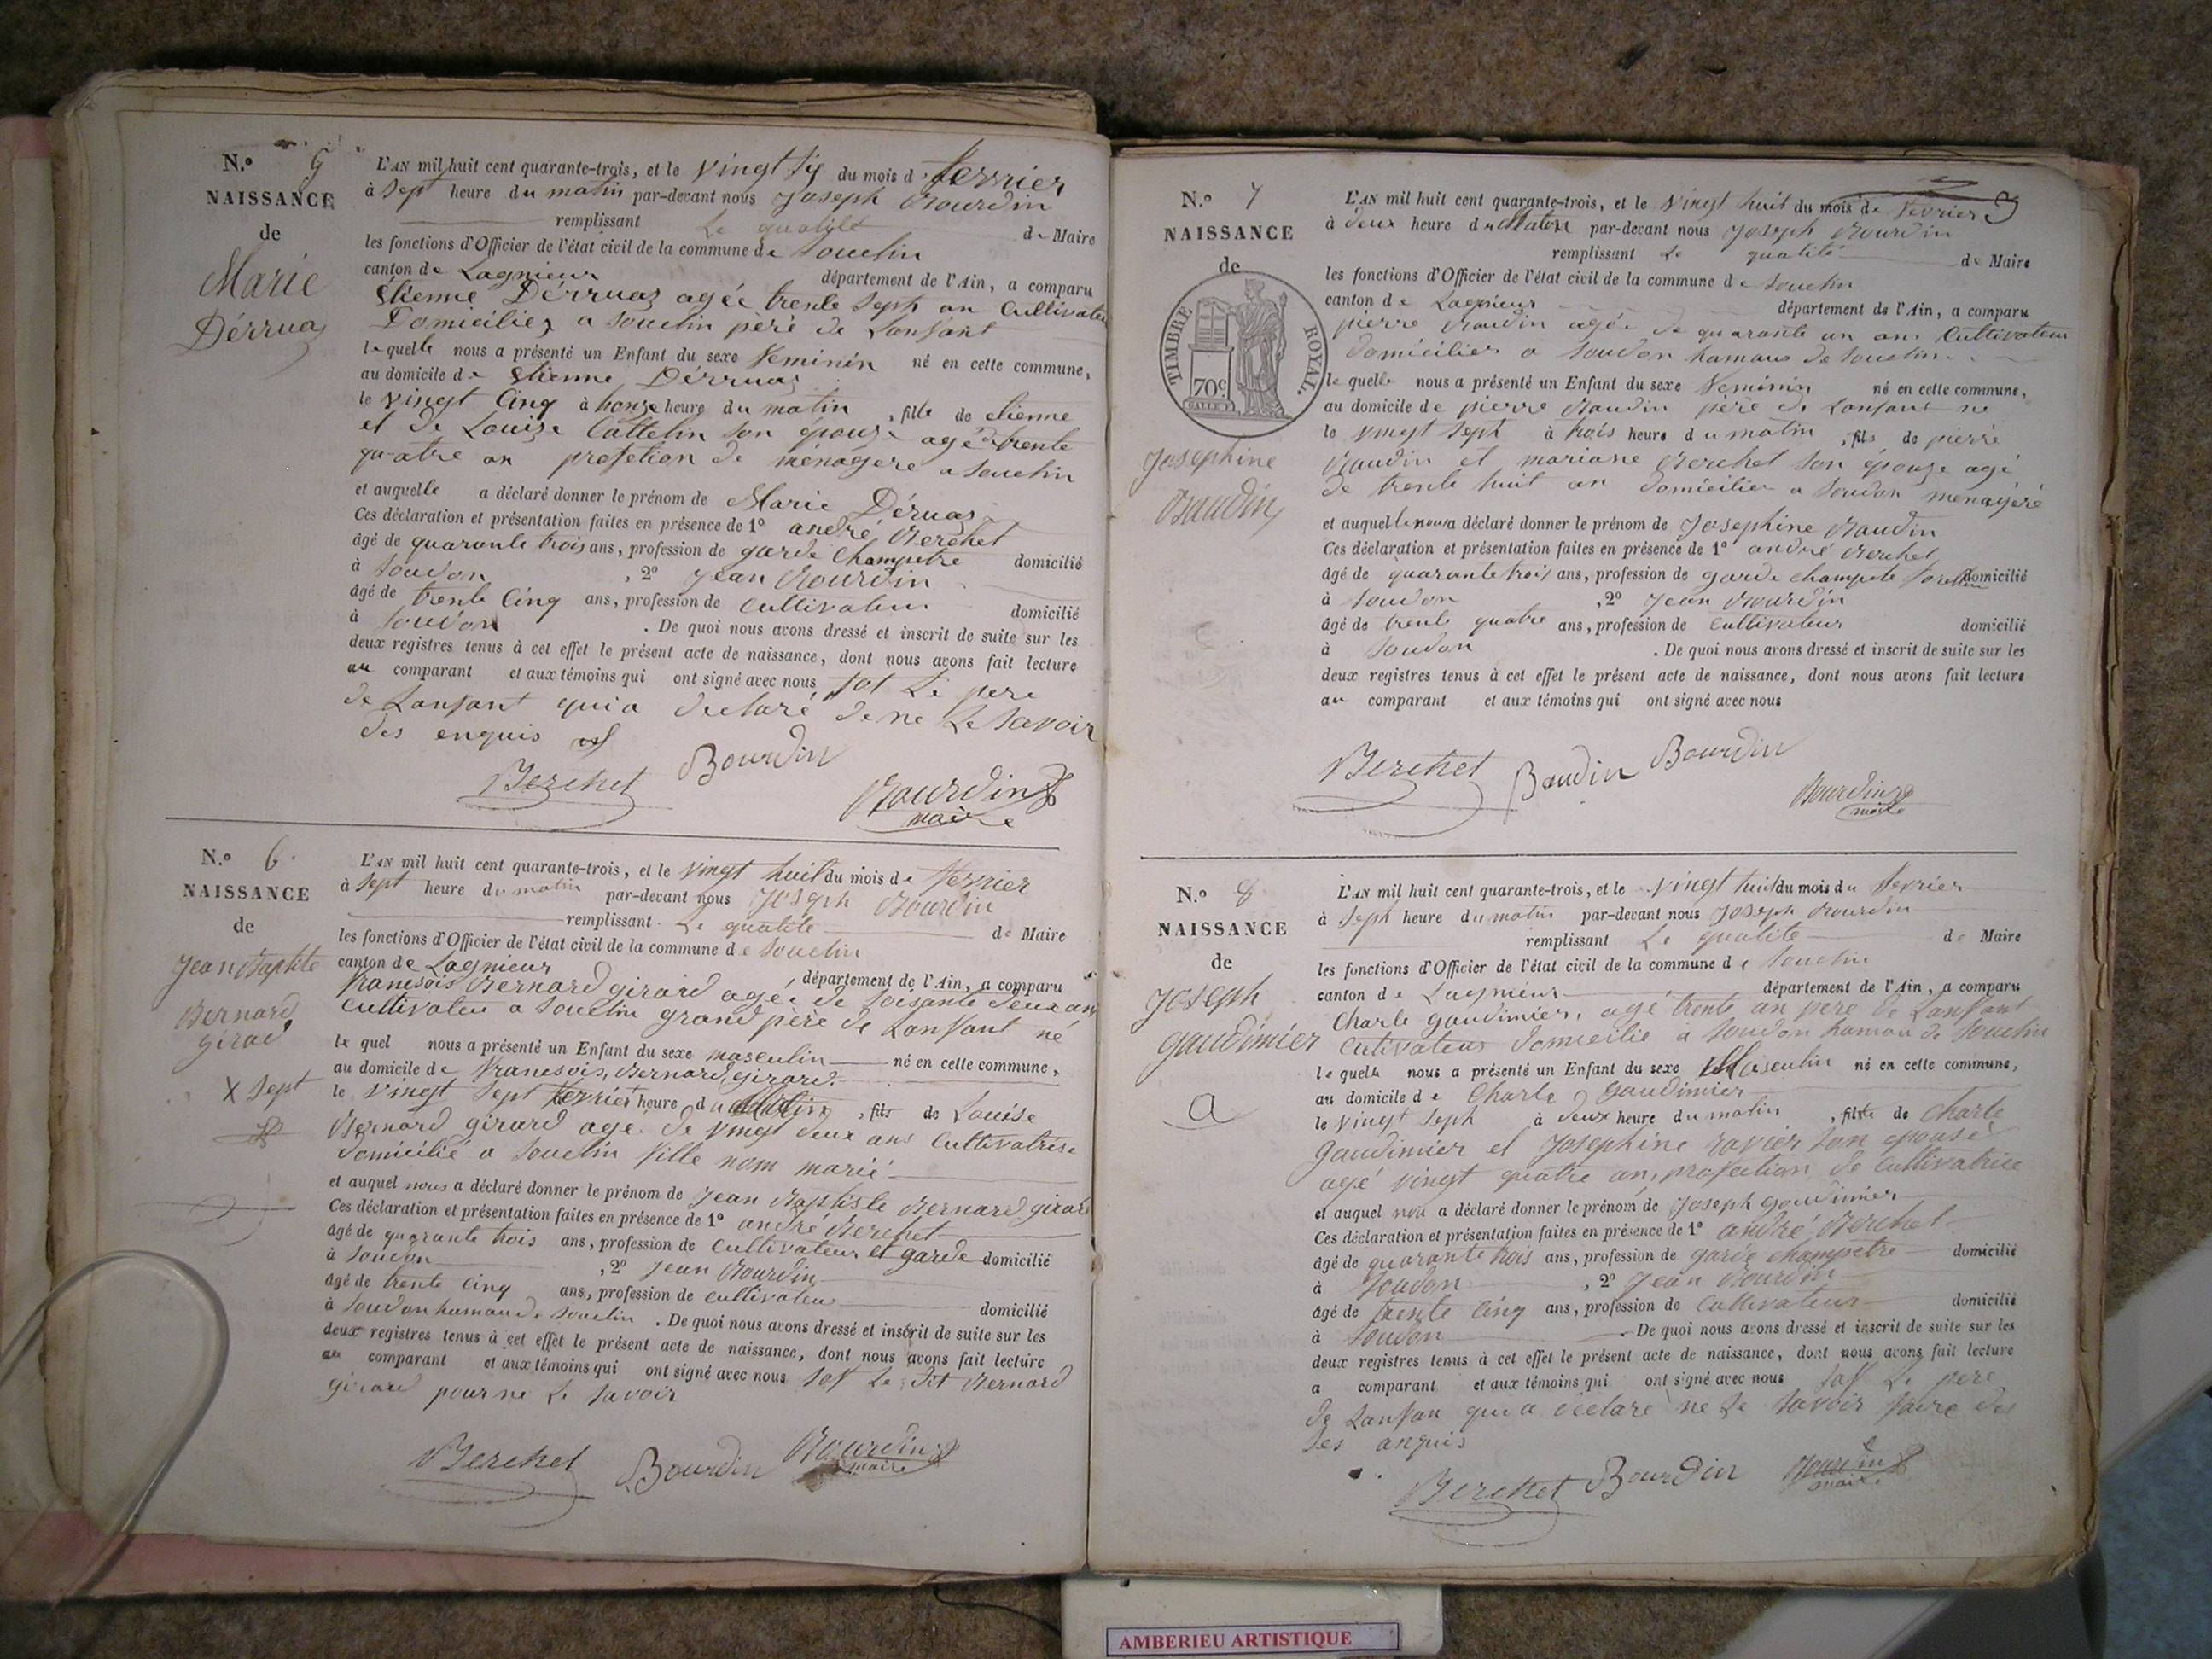 N.o 5
NAISSANCE
de
Marie
Dérruaz
L'AN mil huit cent quarante-trois, et le vingt six du mois d fevrier
à sept heure du matin par-devant nous Joseph Bourdin
remplissant Le qualité de Maire
les fonctions d'Officier de l'état civil de la commune de Souclin
canton de Lagnieur département de l'Ain, a comparu
Etienne Dérruaz agée trente sept an Cultivateur
Domiciliez a Souclin père de Lansant
lequelle nous a présenté un Enfant du sexe feminin né en cette commune,
au domicile de Etienne Dérruaz
le vingt Cinq à honze heure du matin , fille de etienne
et de Louize Cattelin son épouze agé de trente
quatre an profetion de ménagere a souclin
et auquelle a déclaré donner le prénom de Marie Déruaz
Ces déclaration et présentation faites en présence de 1o andré Berchet
âgé de quarante trois ans, profession de garde Champetre domicilié
à Soudon , 2o Jean Bourdin
âgé de trente Cinq ans, profession de cultivateur domicilié
à Soudon . De quoi nous avons dressé et inscrit de suite sur les
deux registres tenus à cet effet le présent acte de naissance, dont nous avons fait lecture
au comparant et aux témoins qui ont signé avec nous sof Le pere
de Lansant qui a declaré de ne Le savoir
des enquis
Berchet Bourdin
Bourdin
maire
N.o 6
NAISSANCE
de
Jean Baptiste
Bernard
girad
X sept
L'AN mil huit cent quarante-trois, et le vingt huit du mois de fevrier
à sept heure du matin par-devant nous Joseph Bourdin
remplissant Le qualité de Maire
les fonctions d'Officier de l'état civil de la commune de Souclin
canton de Lagnieur département de l'Ain, a comparu
francsois Bernard girard agée de soisante deux an
cultivateu a souclin grand père de Lansant né
le quel nous a présenté un Enfant du sexe masculin né en cette commune,
au domicile de francsois, Bernard, girard.
le vingt sept fevrier heure du matin , fils de Louise
Bernard girard age de vingt deux ans Cultivatrise
domicilié a souclin fille nom marié
et auquel nous a déclaré donner le prénom de Jean Baptiste Bernard girard
Ces déclaration et présentation faites en présence de 1o andré Berchet
âgé de quarante trois ans, profession de cultivateur et garde domicilié
à Soudon , 2o Jean Bourdin
âgé de trente Cinq ans, profession de cultivateur domicilié
à Soudon hamau de souclin . De quoi nous avons dressé et inscrit de suite sur les
deux registres tenus à cet effet le présent acte de naissance, dont nous avons fait lecture
au comparant et aux témoins qui ont signé avec nous sof Le dit Bernard
girard pour ne Le savoir
Berchet Bourdin Bourdin
maire
N.o 7
NAISSANCE
de
TIMBRE ROYAL.
70c
Josephine
Baudin
L'AN mil huit cent quarante-trois, et le vingt huit du mois de fevrier
à deux heure du matin par-devant nous Joseph Bourdin
remplissant Le qualité de Maire
les fonctions d'Officier de l'état civil de la commune de Souclin
canton de Lagnieur département de l'Ain, a comparu
pierre Baudin agée de quarante un an Cultivateur
domicilier a Soudon hamaux de Souclin
le quelle nous a présenté un Enfant du sexe feminin né en cette commune,
au domicile de pierre Baudin père de Lansant né
le vingt sept à trois heure du matin , fils de pierre
Baudin et mariane Berchet son épouze agé
de trente huit an domicilier a soudon menagere
et auquel nous a déclaré donner le prénom de Josephine Baudin
Ces déclaration et présentation faites en présence de 1o andré Berchet
âgé de quarante trois ans, profession de garde champete domicilié
à Soudon , 2o Jean Bourdin
âgé de trente quatre ans, profession de cultivateur domicilié
à Soudon . De quoi nous avons dressé et inscrit de suite sur les
deux registres tenus à cet effet le présent acte de naissance, dont nous avons fait lecture
au comparant et aux témoins qui ont signé avec nous
Berchet Baudin Bourdin
Bourdin
maire
N.o 8
NAISSANCE
de
Joseph
gaudimier
a
L'AN mil huit cent quarante-trois, et le vingt huit du mois du fevrier
à sept heure du matin par-devant nous Joseph Bourdin
remplissant Le qualité de Maire
les fonctions d'Officier de l'état civil de la commune de Souclin
canton de Lagnieur département de l'Ain, a comparu
Charle gaudimier, agé trente an pere de Lansant
cutivateur domicilié a Soudon hamau de souclin
le quelle nous a présenté un Enfant du sexe Masculin né en cette commune,
au domicile de Charle Gaudimier
le vingt sept à deux heure du matin , fils de Charle
gaudimier et Josephine ravier son epouse
agé vingt quatre an, profection de cultivatrice
et auquel nou a déclaré donner le prénom de Joseph gaudimier
Ces déclaration et présentation faites en présence de 1o andré Berchet
âgé de quarante trois ans, profession de garde champetre domicilié
à Soudon , 2o Jean Bourdin
âgé de trente Cinq ans, profession de Cultivateur domicilié
à Soudon . De quoi nous avons dressé et inscrit de suite sur les
deux registres tenus à cet effet le présent acte de naissance, dont nous avons fait lecture
a comparant et aux témoins qui ont signé avec nous sof Le pere
de Lansan qui a declaré ne Le savoir faire des
des anquis
Berchet Bourdin Bourdin
maire
AMBERIEU ARTISTIQUE